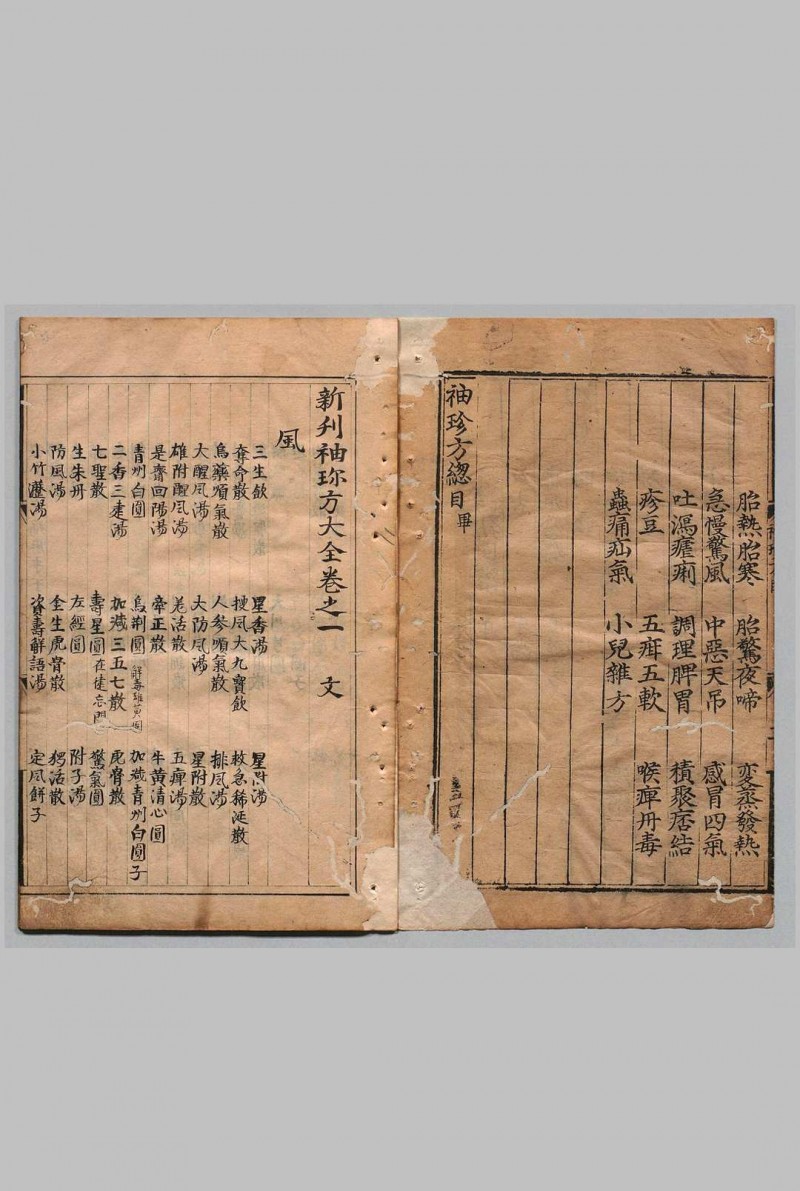 胎熱胎寒 胎驚夜啼 変蒸發熱
急慢驚風 中惡天吊 感冒四氣
吐瀉瘧痢 調理脾胃 積聚痞結
疹豆 五疳五軟 喉痺丹毒
蟲痛疝氣 小兒雜方
袖珍方緫目畢
新刋袖珎方大全卷之一 文
風
三生飲 星香湯 星附湯
奪命散 搜風大九寶飲 救急稀涎散
烏藥順氣散 人参順氣散 排風湯
大醒風湯 大防風湯 星附散
雄附醒風湯 羌活散 五痺湯
是齋回陽湯 辛正散 牛黄清心圓
青州白圓 烏荊圓 解毒雄黄圓 加减青州白圓子
二香三建湯 加减三五七散 虎骨散
七聖散 壽星圓 在徤忘門 驚氣圓
生朱丹 左經圓 附子湯
防風湯 全生虎骨散 獨活散
小竹瀝湯 資壽解語湯 定風餅子